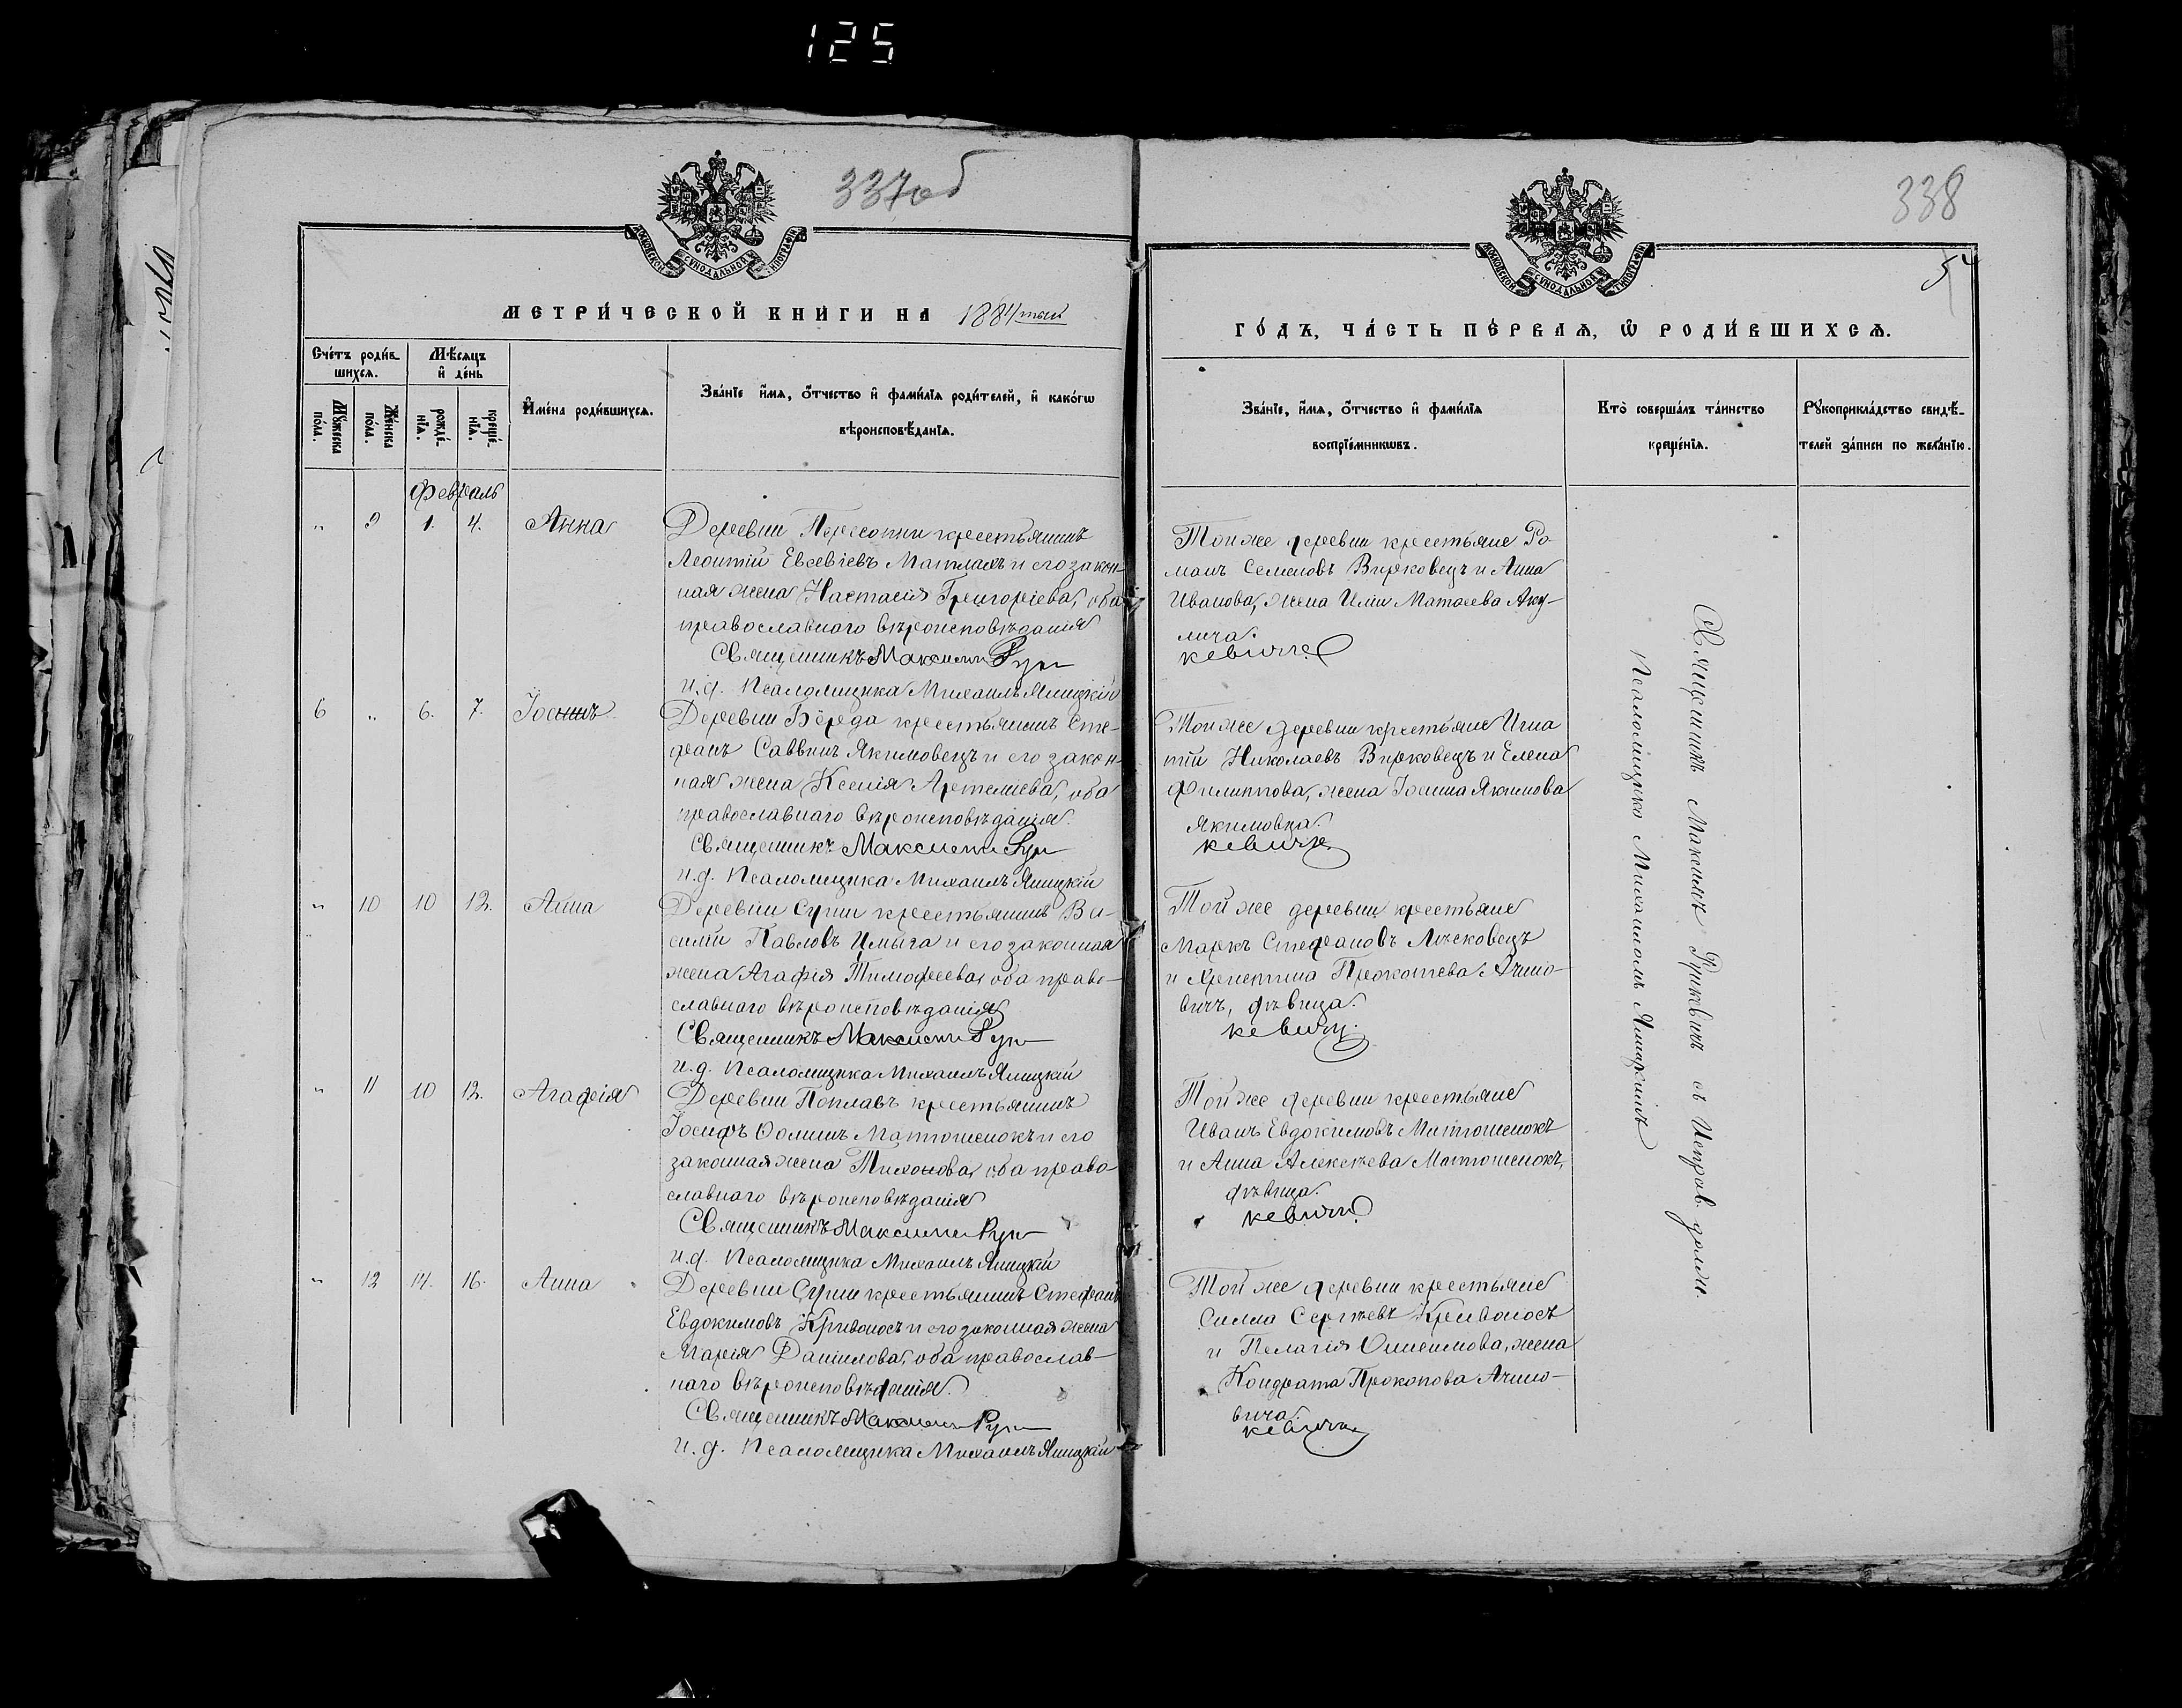 125
337об
338
5
МОСКОВСКОЙ СѴНОДАЛЬНОЙ ТИПОГРАФІИ
МОСКОВСКОЙ СѴНОДАЛЬНОЙ ТИПОГРАФІИ
МЕТРИ́ЧЕСКОЙ КНИГИ НА 1884 той
ГО́ДЪ, ЧА́СТЬ ПЕ́РВАѦ, Ѿ РОДИ́ВШИХСѦ.
Сче́тъ роди́в-
шихсѧ.
Мѣ́сѧцъ
и҆ де́нь
Мꙋ́жеска
по́ла.
Же́нска
по́ла.
рожде́-
нїѧ.
креще́-
нїѧ.
И҆мена̀ роди́вшихсѧ.
Зва́нїе и҆́мѧ, ѻ҆́тчество и҆ фами́лїѧ роди́телей, и҆ како́гѡ
вѣроисповѣ́данїѧ.
Зва́нїе, и҆́мѧ, ѻ҆́тчество и҆ фами́лїѧ
воспрїе́мникѡвъ.
Кто̀ соверша́лъ та́инство
креще́нїѧ.
Рꙋкоприкла́дство свидѣ́-
телей за́писи по жела́нїю.
Февраль
" 9 1. 4. Анна
Деревни крестьянинъ
Леонтій Евсевіевъ Матлахъ и его закон-
ная жена Настасія Григоріева, оба
православнаго вѣроисповѣданія
Священникъ Максимъ Рун
и.д. Псаломщика Михаилъ Ялицкій
Той же деревни крестьяне Ро-
манъ Семеновъ Вирковецъ и Анна
Иванова, жена Иліи Матѳеева Аку-
лича.
кевичъ
6 " 6. 7. Іоаннъ
Деревни Береда крестьянинъ Сте-
фанъ Саввинъ Якимовецъ и его закон-
ная жена Ксенія Артеміева, оба
православнаго вѣроисповѣданія.
Священникъ Максимъ Рун
и.д. Псаломщика Михаилъ Ялицкій
Той же деревни крестьяне Игна-
тій Николаевъ Вирковецъ и Елена
Филиппова, жена Іоанна Якимова
Якимовца.
кевичъ
" 10 10 12. Анна
Деревни Суши крестьянинъ Ва-
силій Павловъ Цмыга и его законная
жена Агафія Тимофеева, оба право-
славнаго вѣроисповѣданія
Священникъ Максимъ Рун
и.д. Псаломщика Михаилъ Ялицкій
Той же деревни крестьяне
Маркъ Стефановъ Лисковецъ
и Христина Прокопіева Ачино-
вичъ, дѣвица.
кевичъ
" 11 10 12. Агафія
Деревни Поплавъ крестьянинъ
Іосифъ Ѳоминъ Матюшенокъ и его
законная жена Тихонова, оба право-
славнаго вѣроисповѣданія
Священникъ Максимъ Рун
и.д. Псаломщика Михаилъ Ялицкій
Той же деревни крестьяне
Иванъ Евдокимовъ Матюшенокъ
и Анна Алексѣева Матюшенокъ,
дѣвица.
кевичъ
" 12 14. 16. Анна
Деревни Суши крестьянинъ Стефанъ
Евдокимовъ Кривоносъ и его законная жена
Марія Даніилова, оба православ-
наго вѣроисповѣданія.
Священникъ Максимъ Рун
и.д. Псаломщика Михаилъ Ялицкій
Той же деревни крестьяне
Силла Сергѣевъ Кривоносъ
и Пелагія Онисимова, жена
Кондрата Прокопова Ачино-
вича.
кевичъ
Священникъ Максимъ Рункевичъ съ Исправ. долж.
Псаломщика Михаиломъ Ялицкимъ